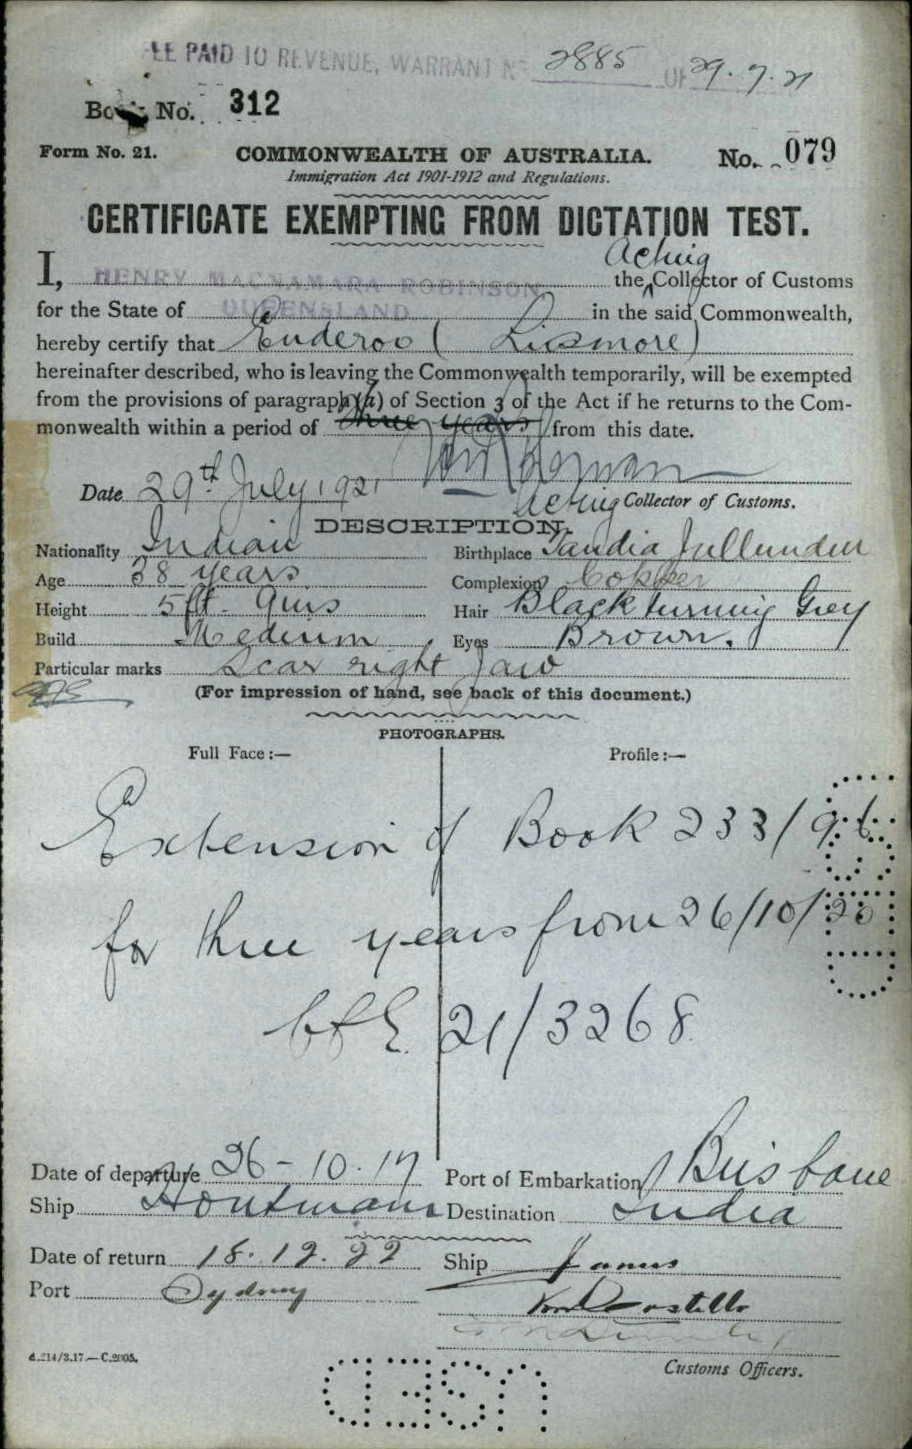 FEE PAID TO REVENUE, WARRANT No 2885 OF 29.7.21
Book No. 312
Form No. 21. COMMONWEALTH OF AUSTRALIA. No. 079
Immigration Act 1901-1912 and Regulations.
CERTIFICATE EXEMPTING FROM DICTATION TEST.
Acting
I, HENRY MACNAMARA ROBINSON the Collector of Customs
for the State of QUEENSLAND in the said Commonwealth,
hereby certify that Enderoo (Lismore)
hereinafter described, who is leaving the Commonwealth temporarily, will be exempted
from the provisions of paragraph (a) of Section 3 of the Act if he returns to the Com-
monwealth within a period of three years from this date.
Date 29th July 1921
Acting Collector of Customs.
DESCRIPTION.
Nationality Indian Birthplace Tandia Jullundur
Age 38 years Complexion Copper
Height 5ft. 9ins Hair Black turning Grey
Build Medium Eyes Brown.
Particular marks Scar right Jaw
(For impression of hand, see back of this document.)
PHOTOGRAPHS.
Full Face:— Profile:—
Extension of Book 233/96
for three years from 26/10/20
C&E 21/3268
Date of departure 26-10.17 Port of Embarkation Brisbane
Ship Houtman Destination India
Date of return 18.12.22 Ship Janus
Port Sydney
Costello
d.214/3.17.—C.2005.
Customs Officers.
USED